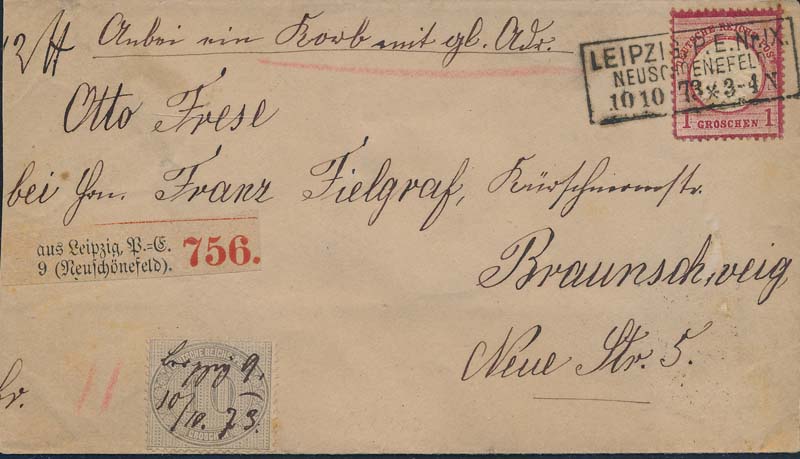 12 ℔ Anbei ein Korb mit gl. Adr.
LEIPZIG P.E. No IX.
NEUSCHOENEFELD
10 10 73 * 3-4 N
DEUTSCHE REICHS-POST
1 GROSCHEN 1
Otto Frese
bei Hrn. Franz Fielgraf, Kürschnermstr.
aus Leipzig, P.=E.
9 (Neuschönefeld). 756.
Braunschweig
Neue Str. 5.
fr. 11
DEUTSCHE REICHS
10
GROSCHEN
Leipzig 9.
10/10. 73.